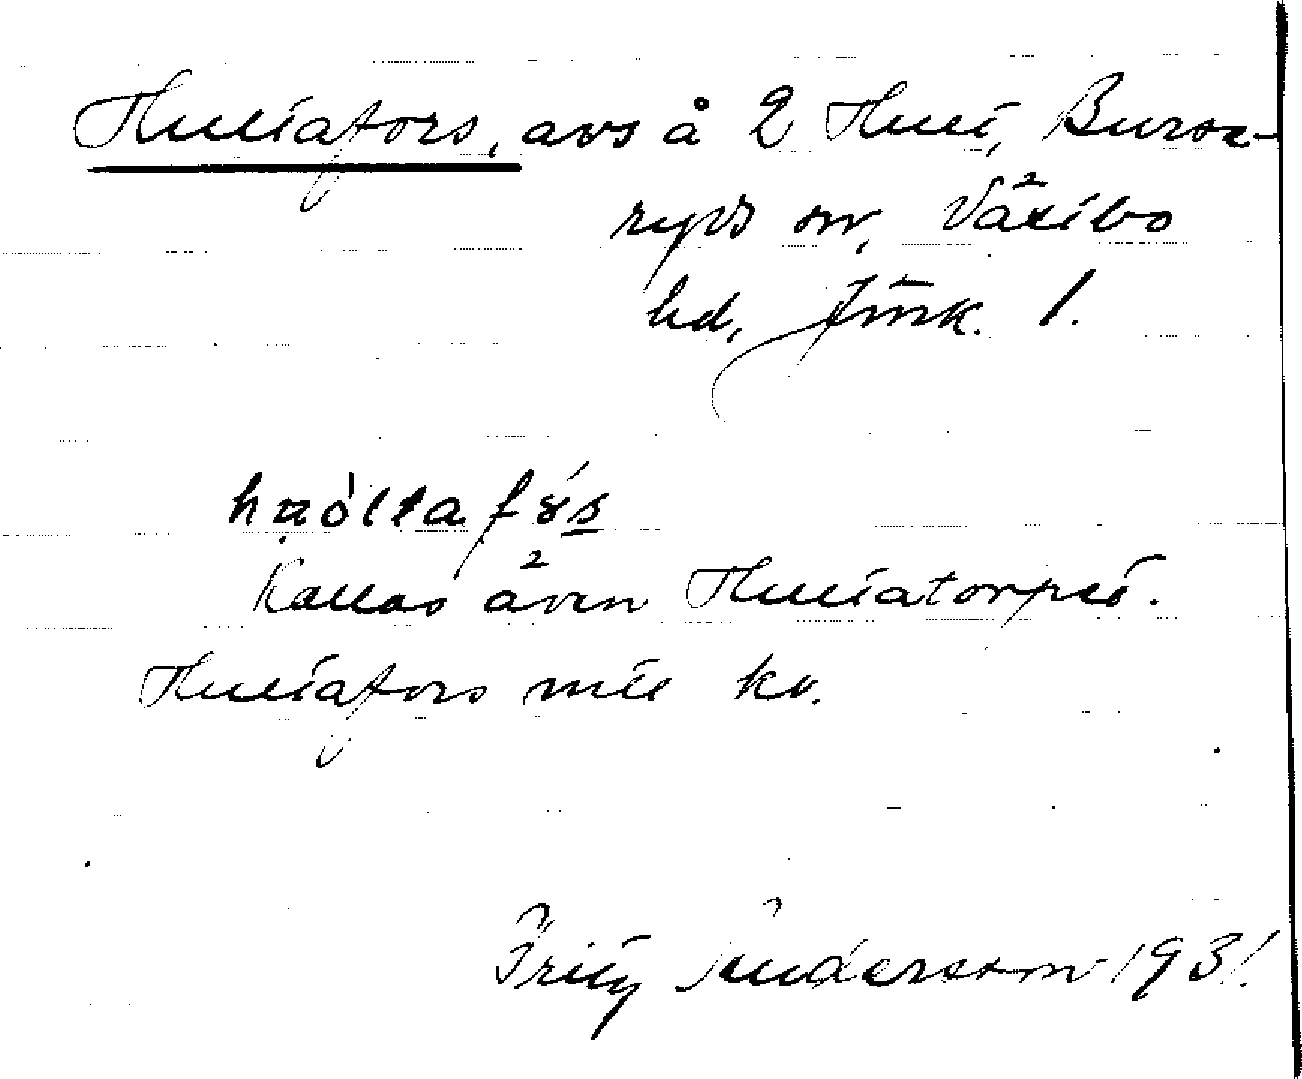 Hultafors, avs å 2 Hult, Burse-
ryds sn, Västbo
hd, Jönk. l.
Kallas även Hultatorpet.
Hultafors kv.
Fritz Andersson 1931.